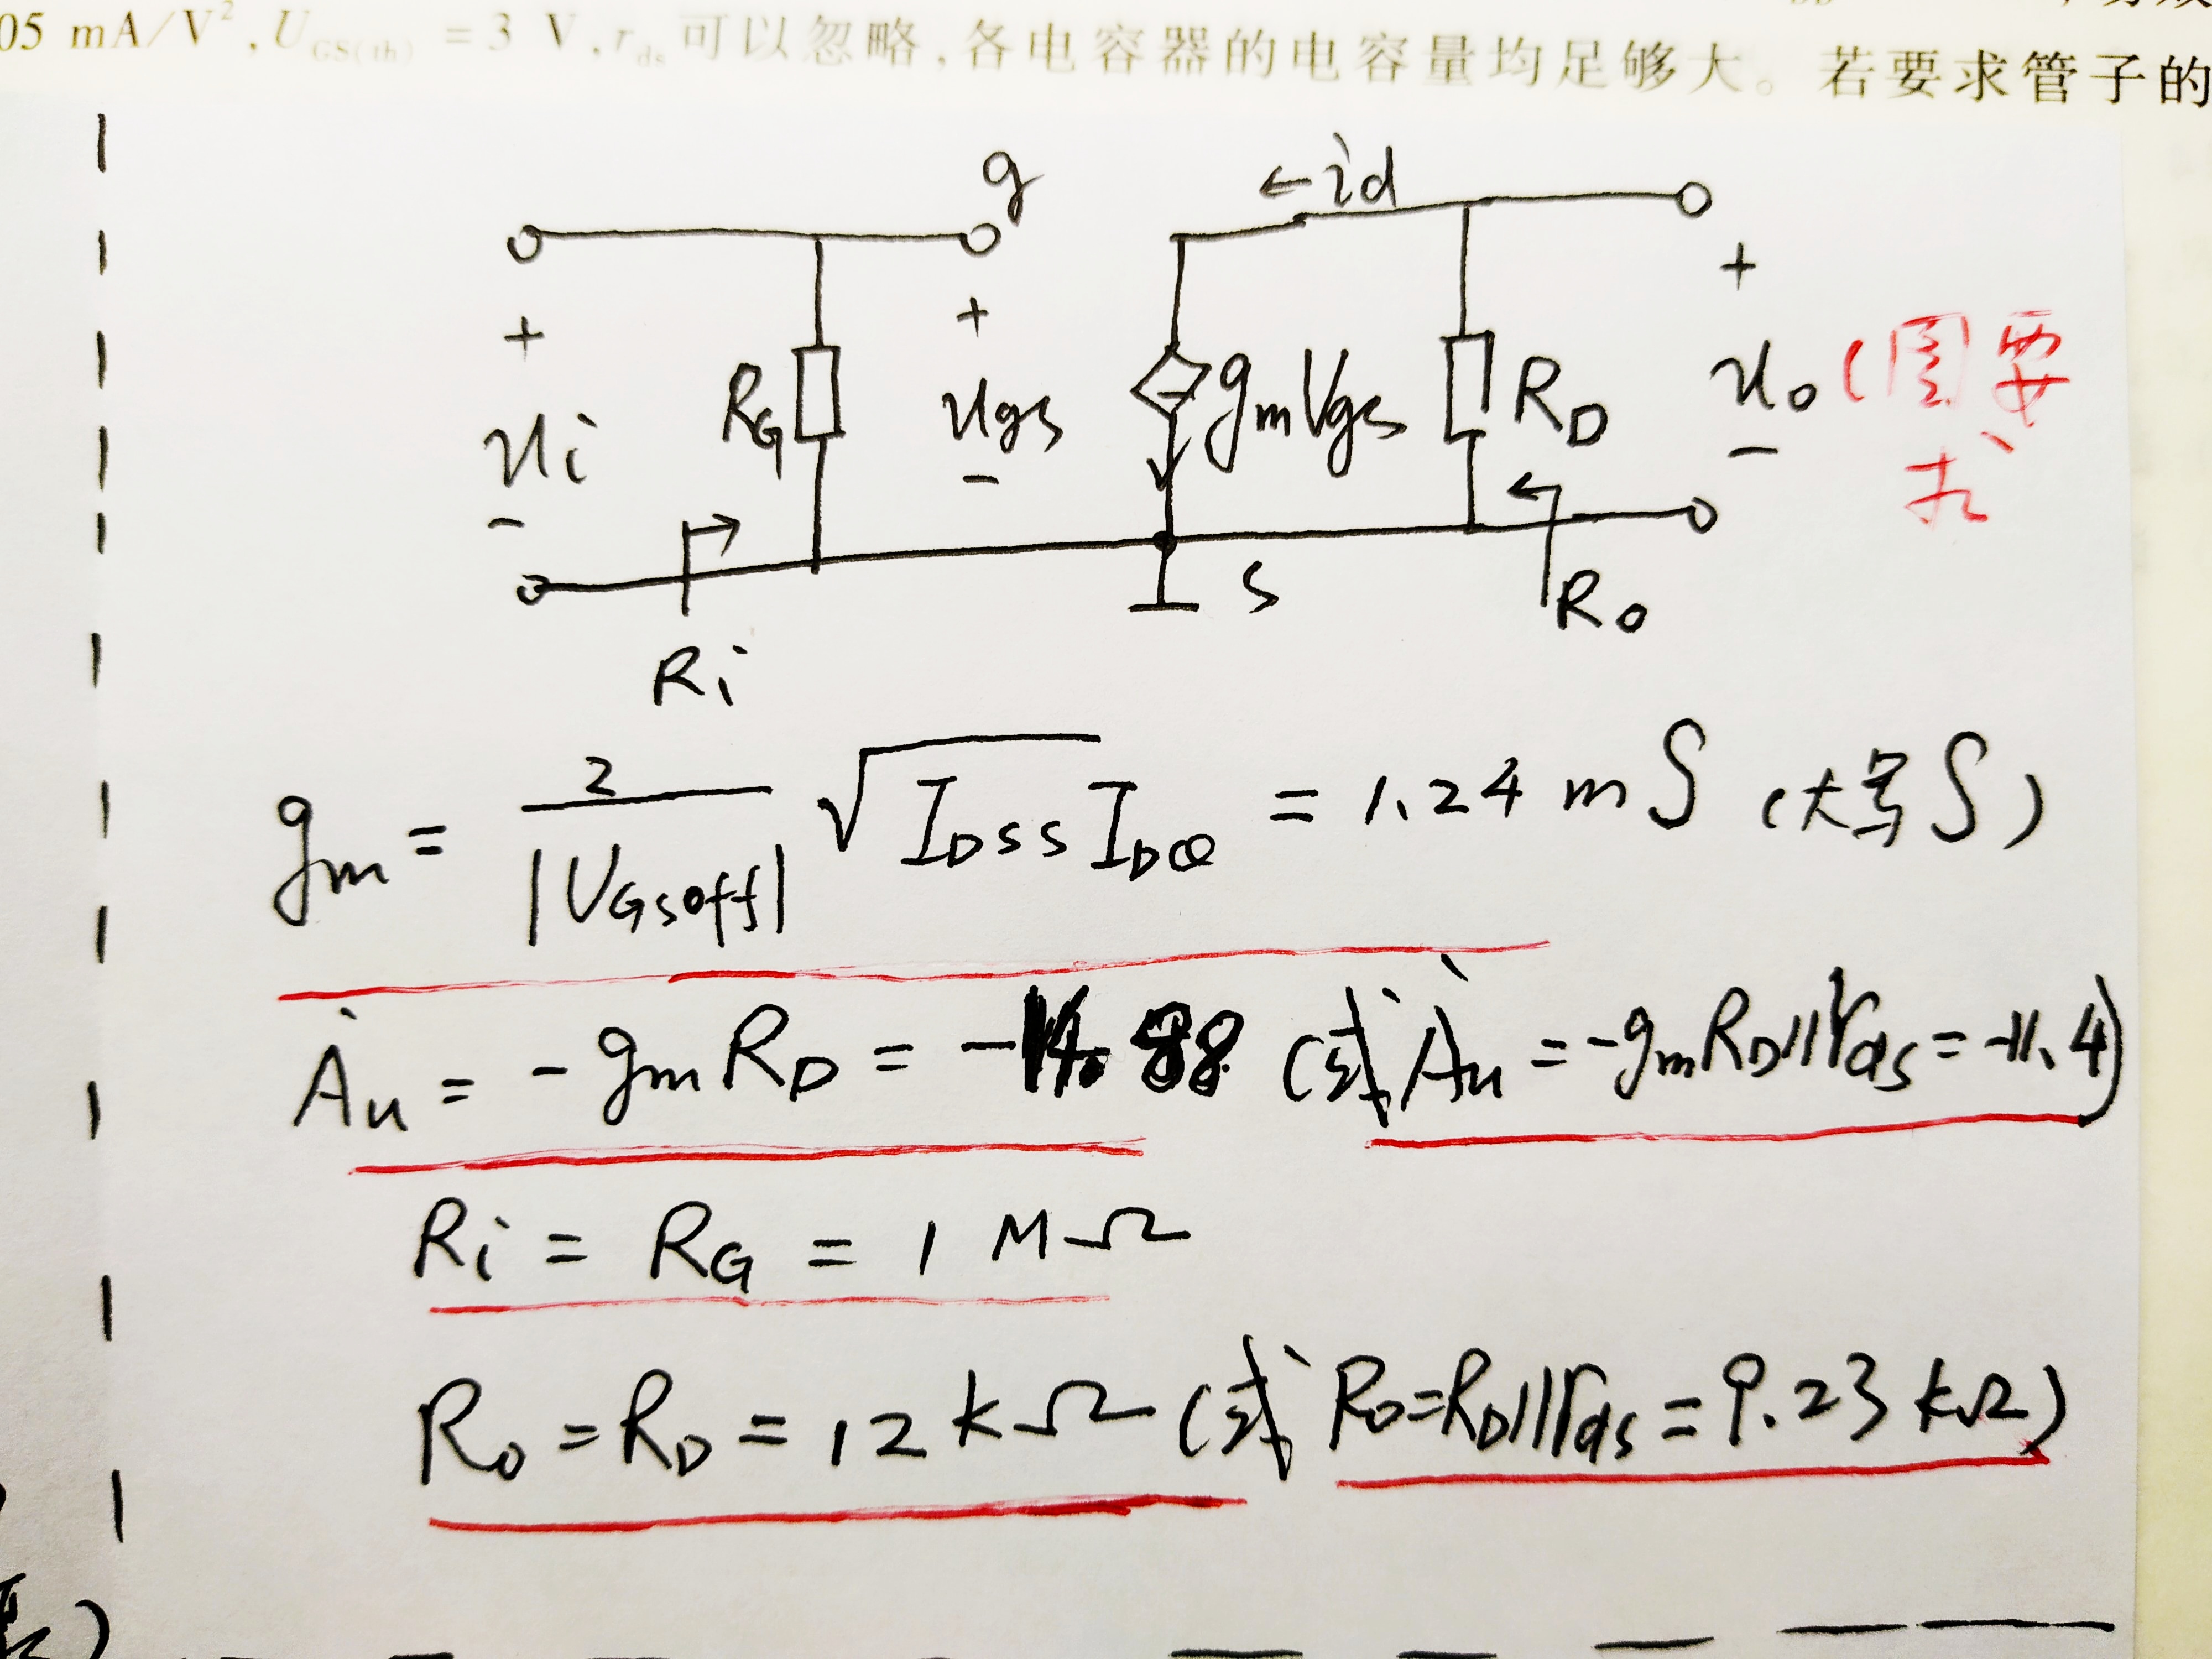 05 mA/V², U_GS(th) = 3 V, r_ds 可以忽略,各电容器的电容量均足够大。若要求管子的
g
←id
+
+
+
ui
RG
ugs
gmVgs
RD
uo
(图要
求
-
-
-
s
Ri
Ro
gm = 2/|UGSoff| √(IDSS IDQ) = 1.24 mS (大写S)
Ȧu = -gmRD = -14.88 (或 Ȧu = -gmRD//rds = -11.4)
Ri = RG = 1 MΩ
Ro = RD = 12 kΩ (或 Ro=RD//rds = 9.23 kΩ)